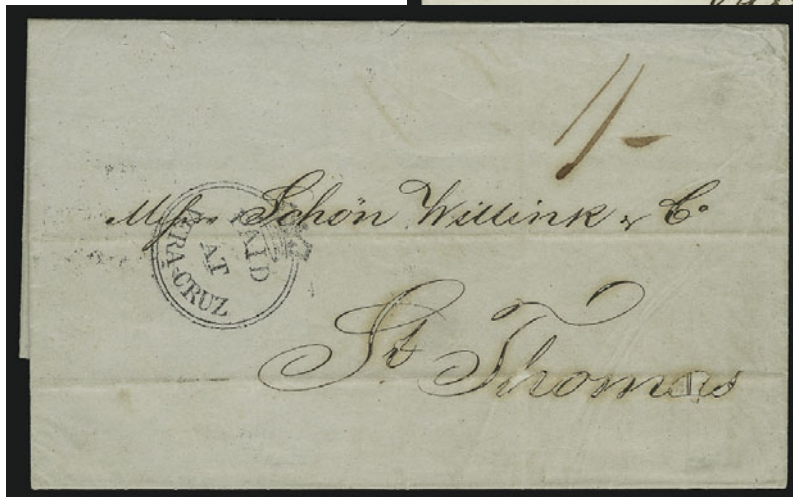 1/-
Messrs Schön Willink & Co
PAID
AT
VERA-CRUZ
St Thomas